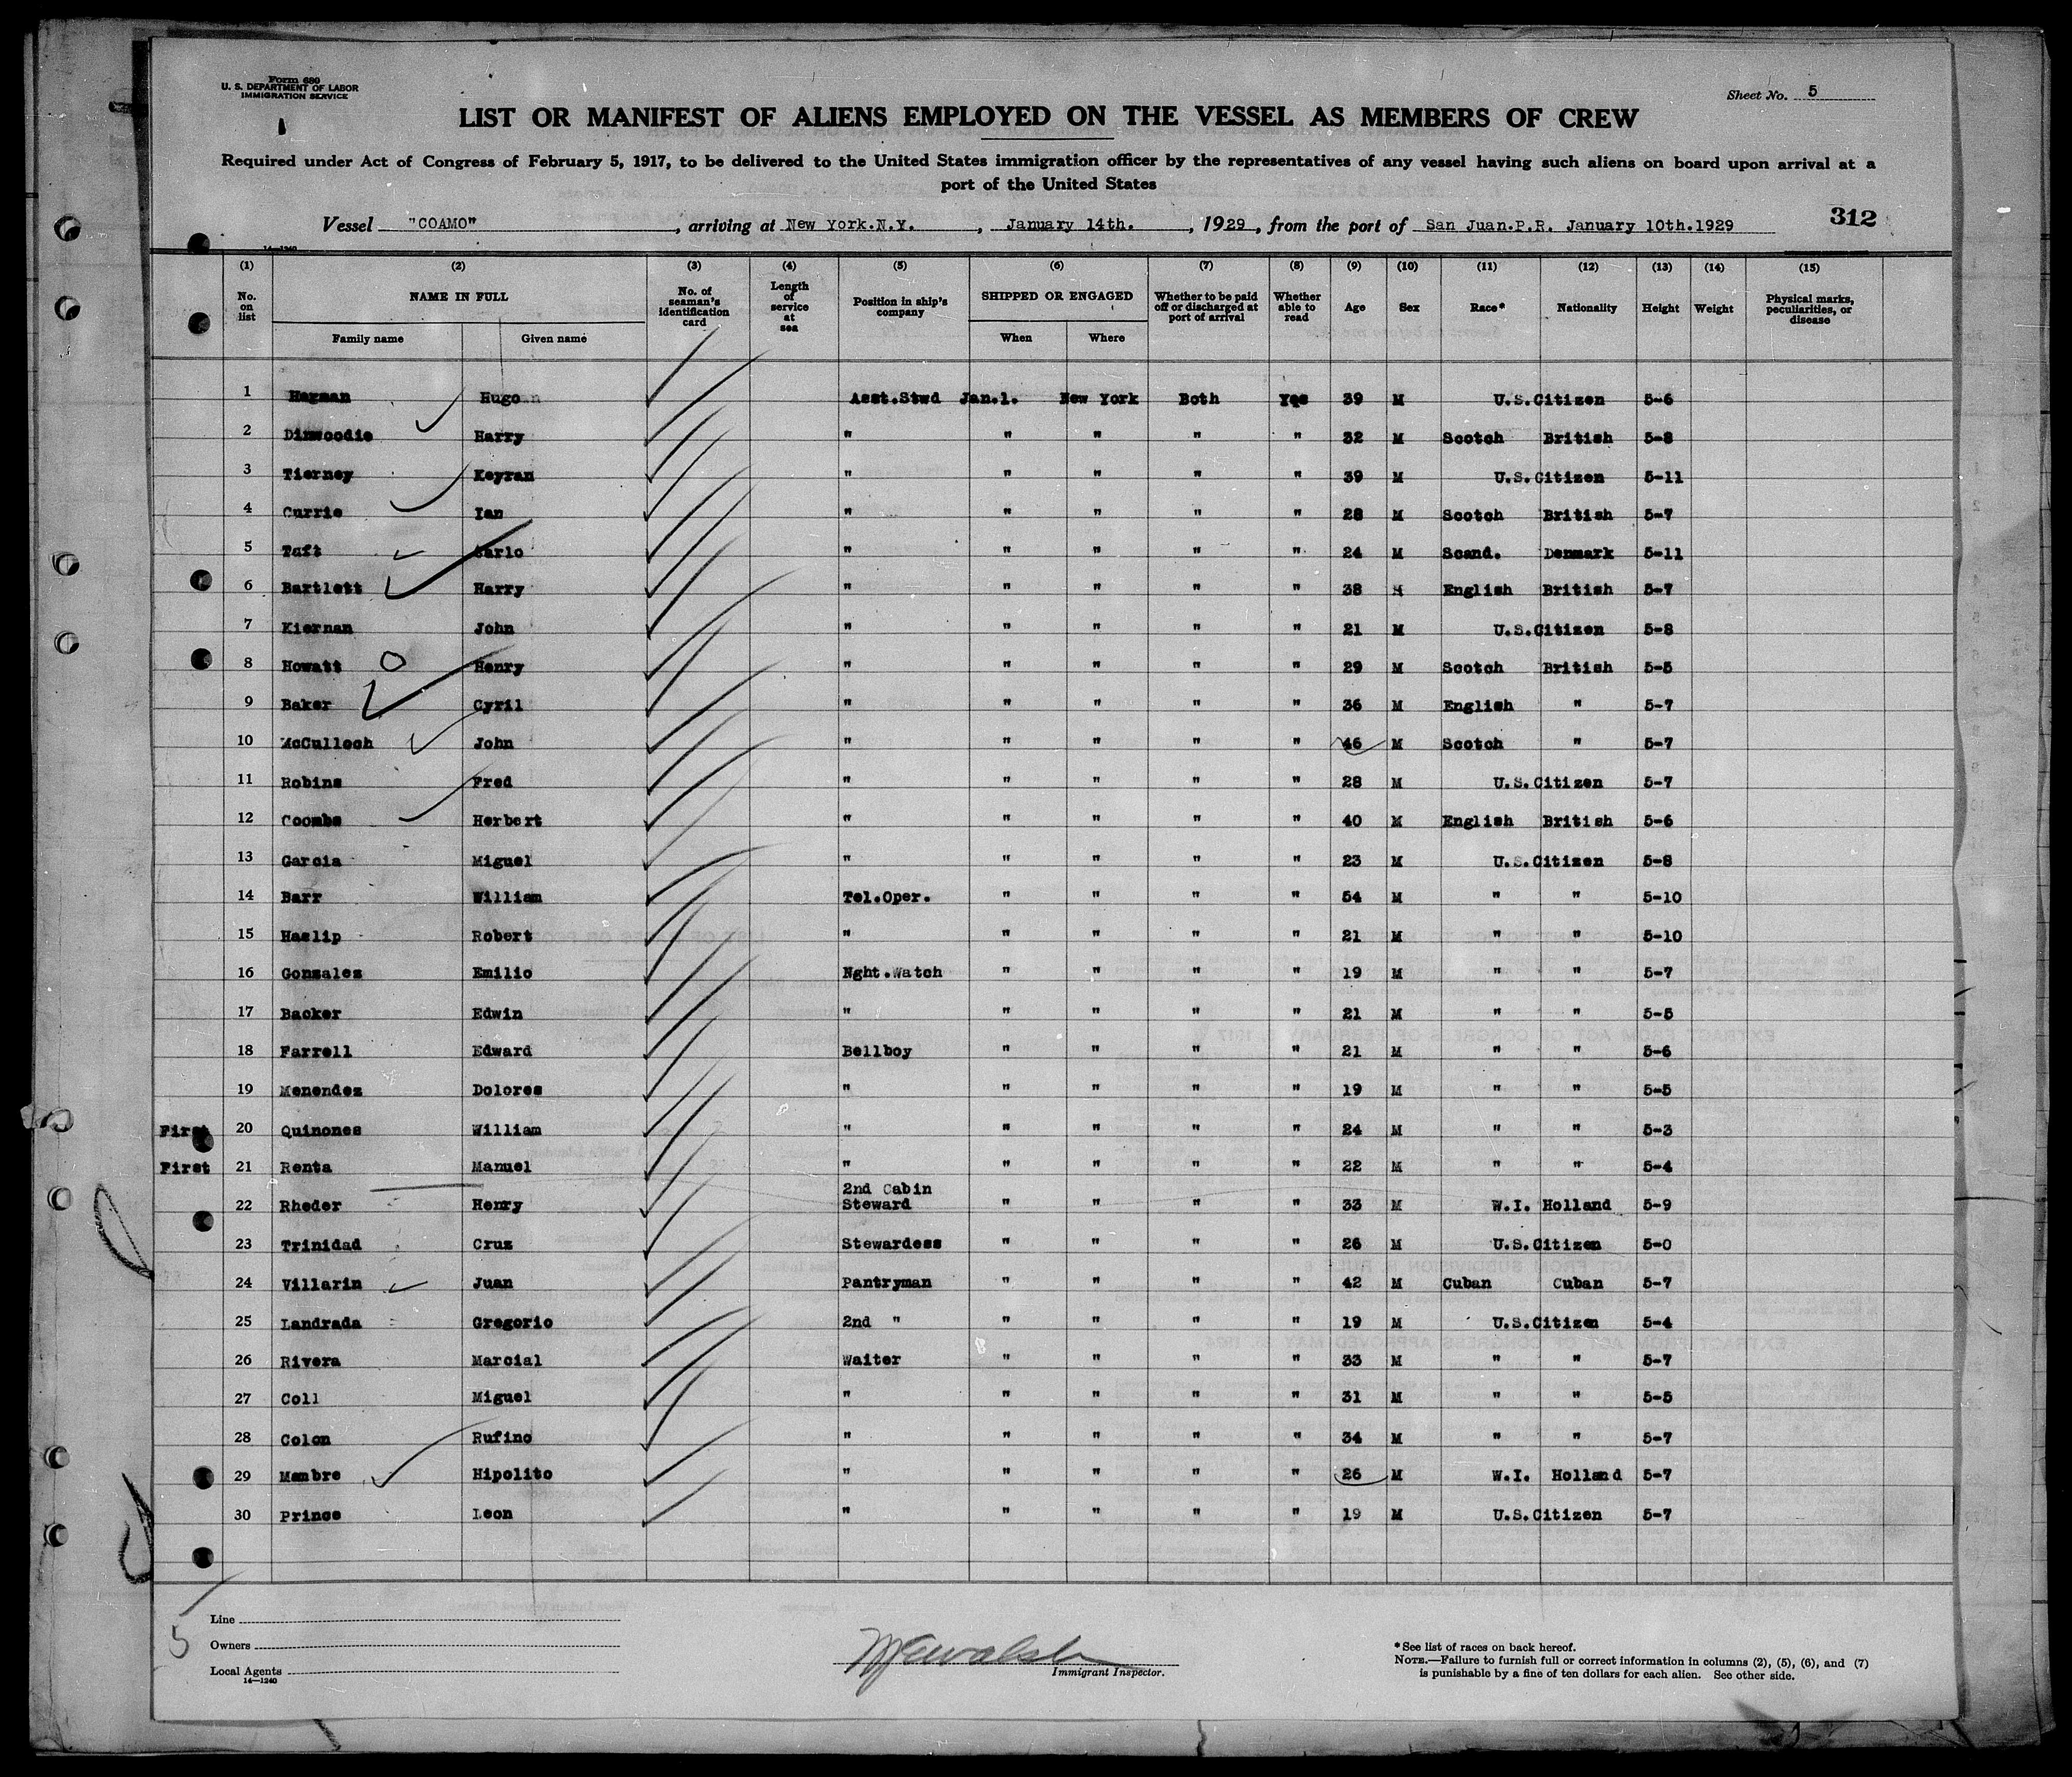 Form 680
U. S. DEPARTMENT OF LABOR
IMMIGRATION SERVICE
Sheet No. 5
LIST OR MANIFEST OF ALIENS EMPLOYED ON THE VESSEL AS MEMBERS OF CREW
Required under Act of Congress of February 5, 1917, to be delivered to the United States immigration officer by the representatives of any vessel having such aliens on board upon arrival at a
port of the United States
Vessel "COAMO", arriving at New York.N.Y., January 14th., 1929, from the port of San Juan.P.R. January 10th.1929
312
14-1240
(1) (2) (3) (4) (5) (6) (7) (8) (9) (10) (11) (12) (13) (14) (15)
No. on list NAME IN FULL No. of seaman's identification card Length of service at sea Position in ship's company SHIPPED OR ENGAGED Whether to be paid off or discharged at port of arrival Whether able to read Age Sex Race* Nationality Height Weight Physical marks, peculiarities, or disease
Family name Given name When Where
1 Hagman Hugo Asst.Stwd Jan.1. New York Both Yes 39 M U.S.Citizen 5-6
2 Dinwoodie Harry " " " " " 32 M Scotch British 5-8
3 Tierney Keyran " " " " " 39 M U.S.Citizen 5-11
4 Currie Ian " " " " " 28 M Scotch British 5-7
5 Taft Carlo " " " " " 24 M Scand. Denmark 5-11
6 Bartlett Harry " " " " " 38 M English British 5-7
7 Kiernan John " " " " " 21 M U.S.Citizen 5-8
8 Howatt Henry " " " " " 29 M Scotch British 5-5
9 Baker Cyril " " " " " 36 M English " 5-7
10 McCulloch John " " " " " 46 M Scotch " 5-7
11 Robins Fred " " " " " 28 M U.S.Citizen 5-7
12 Coombs Herbert " " " " " 40 M English British 5-6
13 Garcia Miguel " " " " " 23 M U.S.Citizen 5-8
14 Barr William Tel.Oper. " " " " 54 M " " 5-10
15 Haslip Robert " " " " " 21 M " " 5-10
16 Gonzales Emilio Nght.Watch " " " " 19 M " " 5-7
17 Backer Edwin " " " " " 21 M " " 5-5
18 Farrell Edward Bellboy " " " " 21 M " " 5-6
19 Menendez Dolores " " " " " 19 M " " 5-5
First 20 Quinones William " " " " " 24 M " " 5-3
First 21 Renta Manuel " " " " " 22 M " " 5-4
22 Rheder Henry 2nd Cabin Steward " " " " 33 M W.I. Holland 5-9
23 Trinidad Cruz Stewardess " " " " 26 M U.S.Citizen 5-0
24 Villarin Juan Pantryman " " " " 42 M Cuban Cuban 5-7
25 Landrada Gregorio 2nd " " " " " 19 M U.S.Citizen 5-4
26 Rivera Marcial Waiter " " " " 33 M " " 5-7
27 Coll Miguel " " " " " 31 M " " 5-5
28 Colon Rufino " " " " " 34 M " " 5-7
29 Mambre Hipolito " " " " " 26 M W.I. Holland 5-7
30 Prince Leon " " " " " 19 M U.S.Citizen 5-7
5
Line
Owners
Local Agents
14-1240
Immigrant Inspector.
*See list of races on back hereof.
NOTE.—Failure to furnish full or correct information in columns (2), (5), (6), and (7)
is punishable by a fine of ten dollars for each alien. See other side.